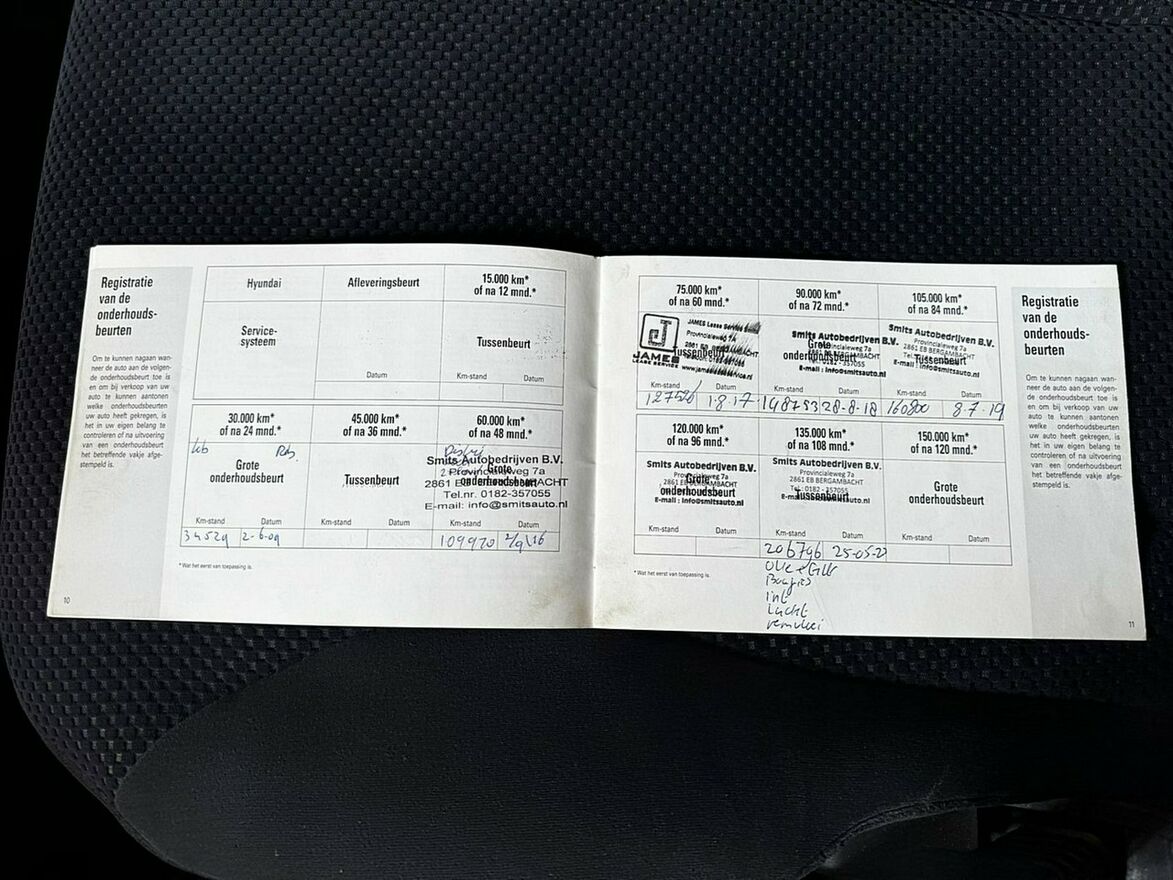 Registratie
van de
onderhouds-
beurten
Om te kunnen nagaan wan-
neer de auto aan de volgen-
de onderhoudsbeurt toe is
en om bij verkoop van uw
auto te kunnen aantonen
welke onderhoudsbeurten
uw auto heeft gekregen, is
het in uw eigen belang te
controleren of na uitvoering
van een onderhoudsbeurt
het betreffende vakje afge-
stempeld is.
10
Hyundai
Service-
systeem
Afleveringsbeurt
Datum
15.000 km*
of na 12 mnd.*
Tussenbeurt
Km-stand Datum
30.000 km*
of na 24 mnd.*
Grote
onderhoudsbeurt
Km-stand Datum
34529 2-6-09
45.000 km*
of na 36 mnd.*
Tussenbeurt
Km-stand Datum
60.000 km*
of na 48 mnd.*
Smits Autobedrijven B.V.
Grote
Provincialeweg 7a
onderhoudsbeurt
2861 EB BERGAMBACHT
Tel.nr. 0182-357055
E-mail: info@smitsauto.nl
Km-stand Datum
109970
* Wat het eerst van toepassing is.
75.000 km*
of na 60 mnd.*
JAMES Lease Service
Provincialeweg 7A
2861 EB
JAMES
LEASE SERVICE
Tussenbeurt
Km-stand Datum
127526 1-8-17
90.000 km*
of na 72 mnd.*
Smits Autobedrijven B.V.
Grote
Provincialeweg 7a
onderhoudsbeurt
2861 EB BERGAMBACHT
Tel.: 0182 - 357055
E-mail : info@smitsauto.nl
Km-stand Datum
148753 28-8-18
105.000 km*
of na 84 mnd.*
Smits Autobedrijven B.V.
Provincialeweg 7a
2861 EB BERGAMBACHT
Tussenbeurt
E-mail : info@smitsauto.nl
Km-stand Datum
160800 8-7-19
120.000 km*
of na 96 mnd.*
Smits Autobedrijven B.V.
Grote
Provincialeweg 7a
2861 EB BERGAMBACHT
onderhoudsbeurt
Tel.: 0182 - 357055
E-mail : info@smitsauto.nl
Km-stand Datum
135.000 km*
of na 108 mnd.*
Smits Autobedrijven B.V.
Provincialeweg 7a
2861 EB BERGAMBACHT
Tel.: 0182 - 357055
Tussenbeurt
E-mail : info@smitsauto.nl
Km-stand Datum
206796
Bougies
int
Lucht
remvloei
150.000 km*
of na 120 mnd.*
Grote
onderhoudsbeurt
Km-stand Datum
* Wat het eerst van toepassing is.
Registratie
van de
onderhouds-
beurten
Om te kunnen nagaan wan-
neer de auto aan de volgen-
de onderhoudsbeurt toe is
en om bij verkoop van uw
auto te kunnen aantonen
welke onderhoudsbeurten
uw auto heeft gekregen, is
het in uw eigen belang te
controleren of na uitvoering
van een onderhoudsbeurt
het betreffende vakje afge-
stempeld is.
11